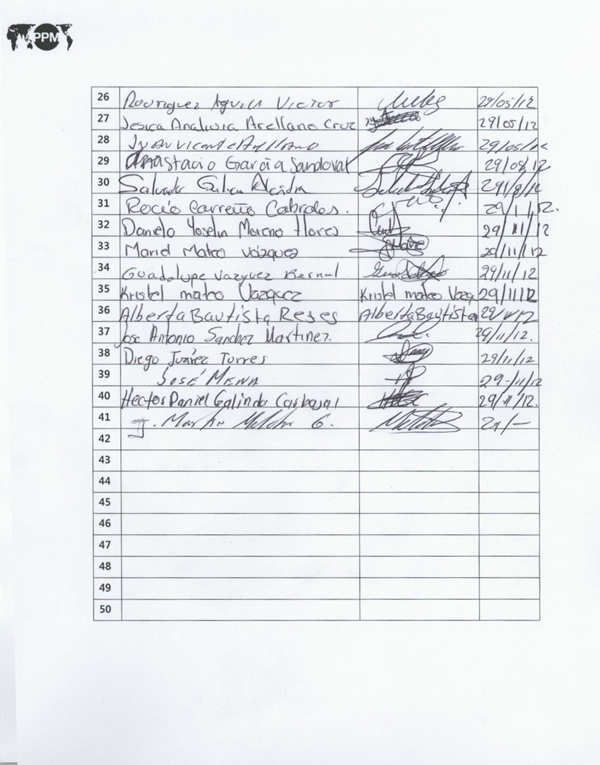 PPM
26 Rodriguez Aguila Victor 29/05/12
27 Jesica Analuvia Arellano Cruz 29/05/12
28 Juan Vicente 29/05/12
29 Anastacio García Sandoval 29/08/12
30 Salvador
31 Rocío Carreño Cabrales. 29/ / /12.
32 Daniela Yoselin Moreno Flores 29/11/12
33 Mariel Mateo Vázquez 29/11/12
34 Guadalupe Vazquez Bernal 29/11/12
35 Kristel mateo Vazquez Kristel mateo Vazq 29/11/12
36 Alberta Bautista Reyes Alberta Bautista
37 Jose Antonio Sanchez Martinez. 29/11/12.
38 Diego Juárez Torres 29/11/12
39 JOSÉ MENA 29-/11/12
40 Hector Daniel Galindo Carbajal 29/11/12.
41 J. Martin Melchor G. 29/—
42
43
44
45
46
47
48
49
50